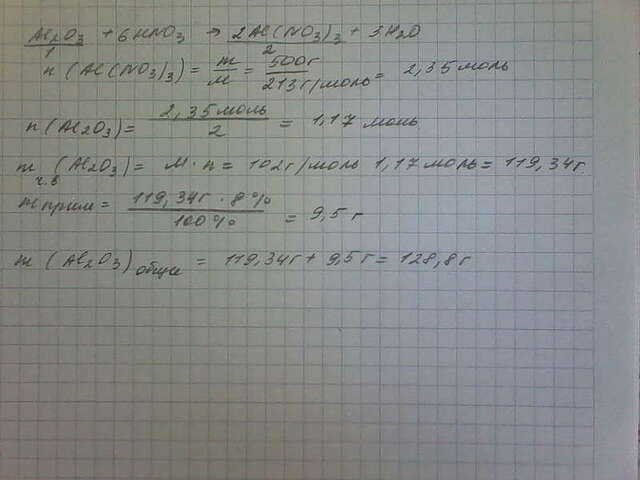 Al₂O₃ + 6HNO₃ → 2Al(NO₃)₃ + 3H₂O
1 2
n (Al(NO₃)₃) = m/M = 500г/213г/моль = 2,35 моль
n (Al₂O₃) = 2,35 моль/2 = 1,17 моль
m ч.в (Al₂O₃) = M · n = 102г/моль 1,17 моль = 119,34г
m прим = 119,34г · 8%/100% = 9,5 г
m (Al₂O₃) общ = 119,34г + 9,5г = 128,8г